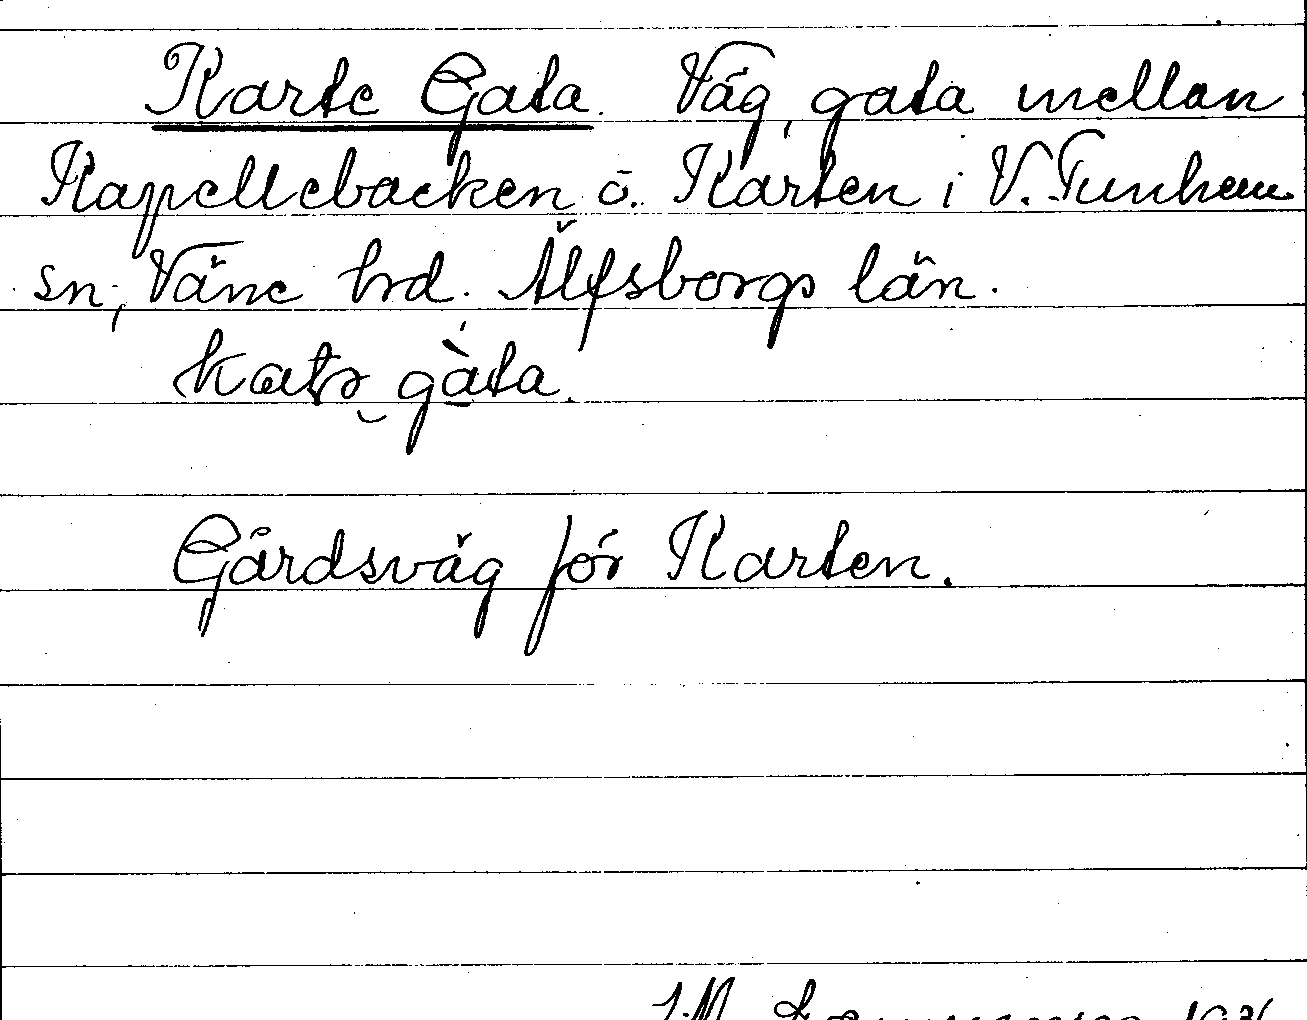 Karte Gata. Väg, gata mellan
Kapellebacken o. Karten i V. Tunhem
sn, Väne hrd. Älfsborgs län.
gàta.
Gårdsväg för Karten.